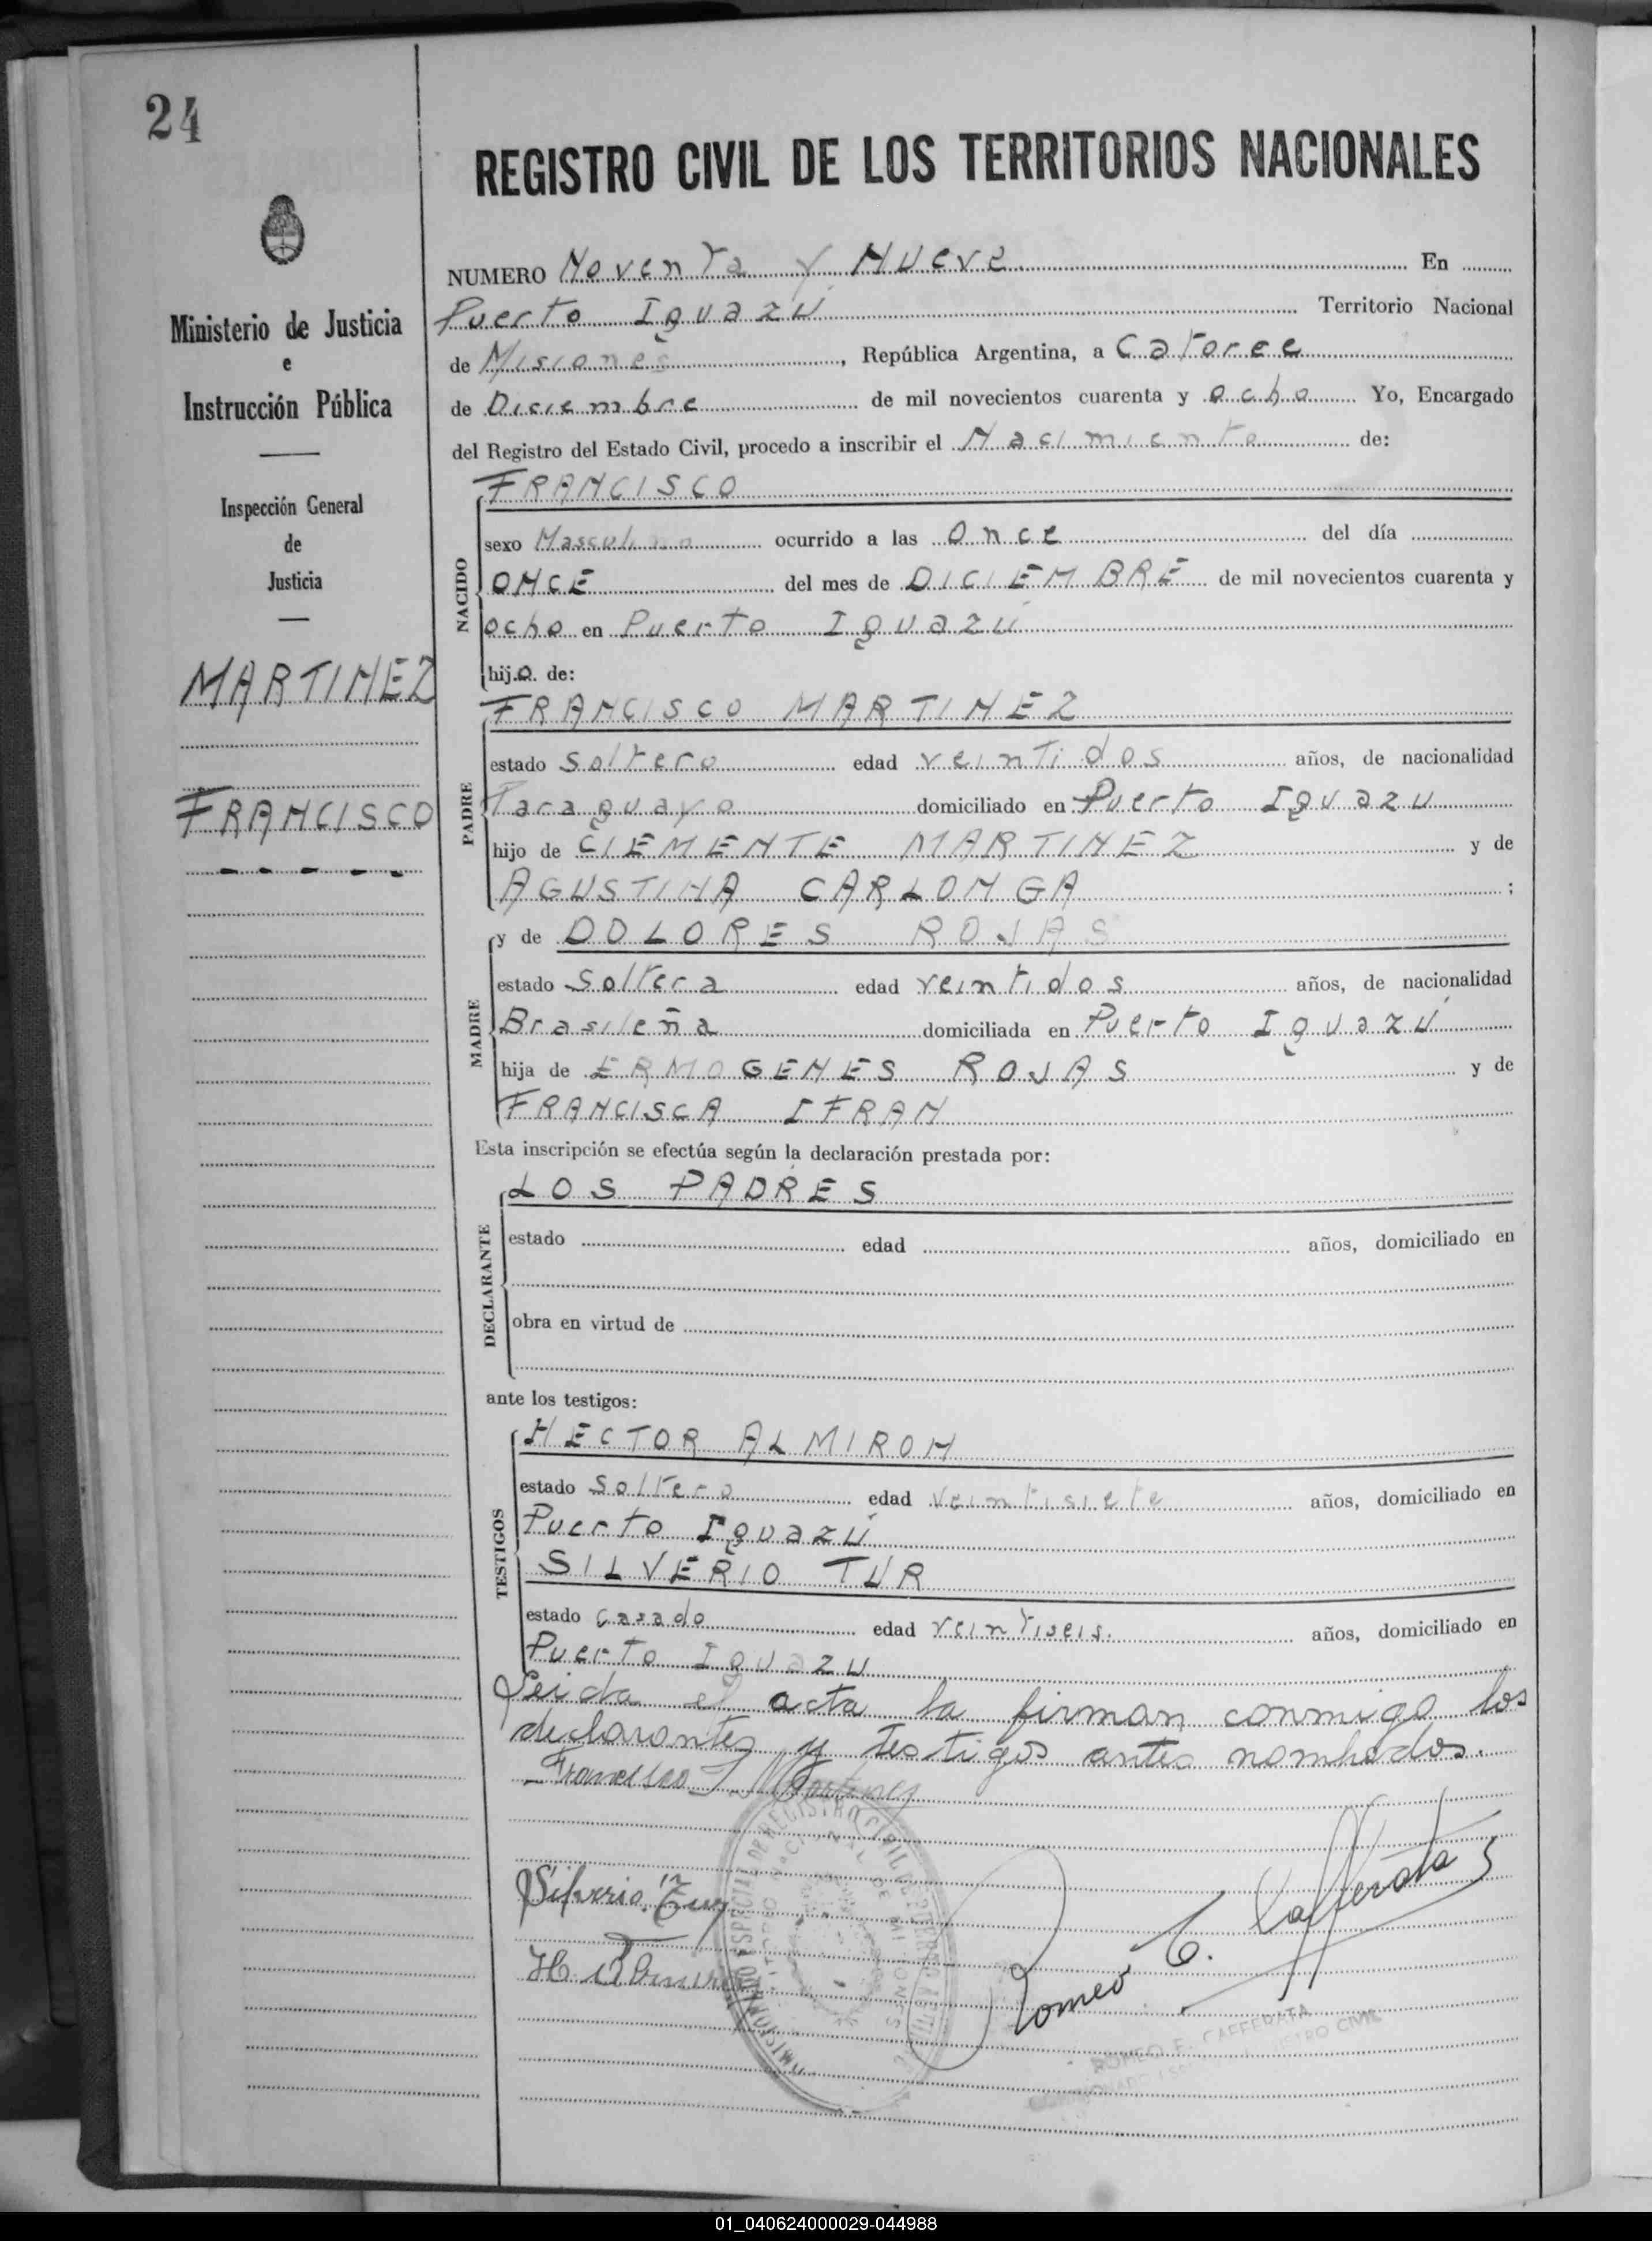 24
REGISTRO CIVIL DE LOS TERRITORIOS NACIONALES
Ministerio de Justicia
e
Instrucción Pública
Inspección General
de
Justicia
MARTINEZ
FRANCISCO
NUMERO Noventa y Nueve En
Puerto Iguazú Territorio Nacional
de Misiones, República Argentina, a Catorce
de Diciembre de mil novecientos cuarenta y ocho Yo, Encargado
del Registro del Estado Civil, procedo a inscribir el Nacimiento de:
FRANCISCO
NACIDO
sexo Masculino ocurrido a las Once del día
ONCE del mes de DICIEMBRE de mil novecientos cuarenta y
ocho en Puerto Iguazú
hijo de:
FRANCISCO MARTINEZ
PADRE
estado Soltero edad veintidos años, de nacionalidad
Paraguayo domiciliado en Puerto Iguazu
hijo de CLEMENTE MARTINEZ y de
AGUSTINA CARLONGA ;
MADRE
y de DOLORES ROJAS
estado Soltera edad veintidos años, de nacionalidad
Brasileña domiciliada en Puerto Iguazú
hija de ERMOGENES ROJAS y de
FRANCISCA IFRAN
Esta inscripción se efectúa según la declaración prestada por:
LOS PADRES
DECLARANTE
estado edad años, domiciliado en
obra en virtud de
ante los testigos:
HECTOR ALMIRON
TESTIGOS
estado Soltero edad veintisiete años, domiciliado en
Puerto Iguazú
SILVERIO TUR
estado Casado edad veintiseis. años, domiciliado en
Puerto Iguazu
Leida el acta la firman conmigo los
declarantes y testigos antes nombrados.
Francisco Martinez
Silverio Tur
Romeo E. Cafferata
ROMEO E. CAFFERATA
REGISTRO CIVIL
01_040624000029-044988